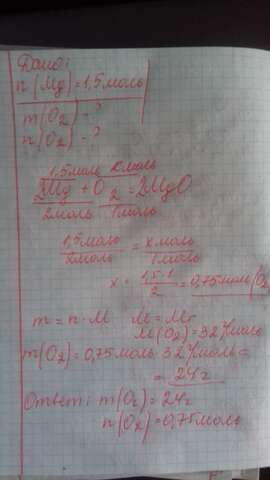 Дано:
n(Mg)=1,5моль
m(O₂) - ?
n(O₂) - ?
1,5моль xмоль
2Mg + O₂ = 2MgO
2моль 1моль
1,5моль / 2моль = x моль / 1моль
x = 1,5·1 / 2 = 0,75моль(O₂
m = n·M M=Mr
M(O₂)=32г/моль
m(O₂)=0,75моль·32г/моль=
= 24г
Ответ: m(O₂)=24г
n(O₂)=0,75моль